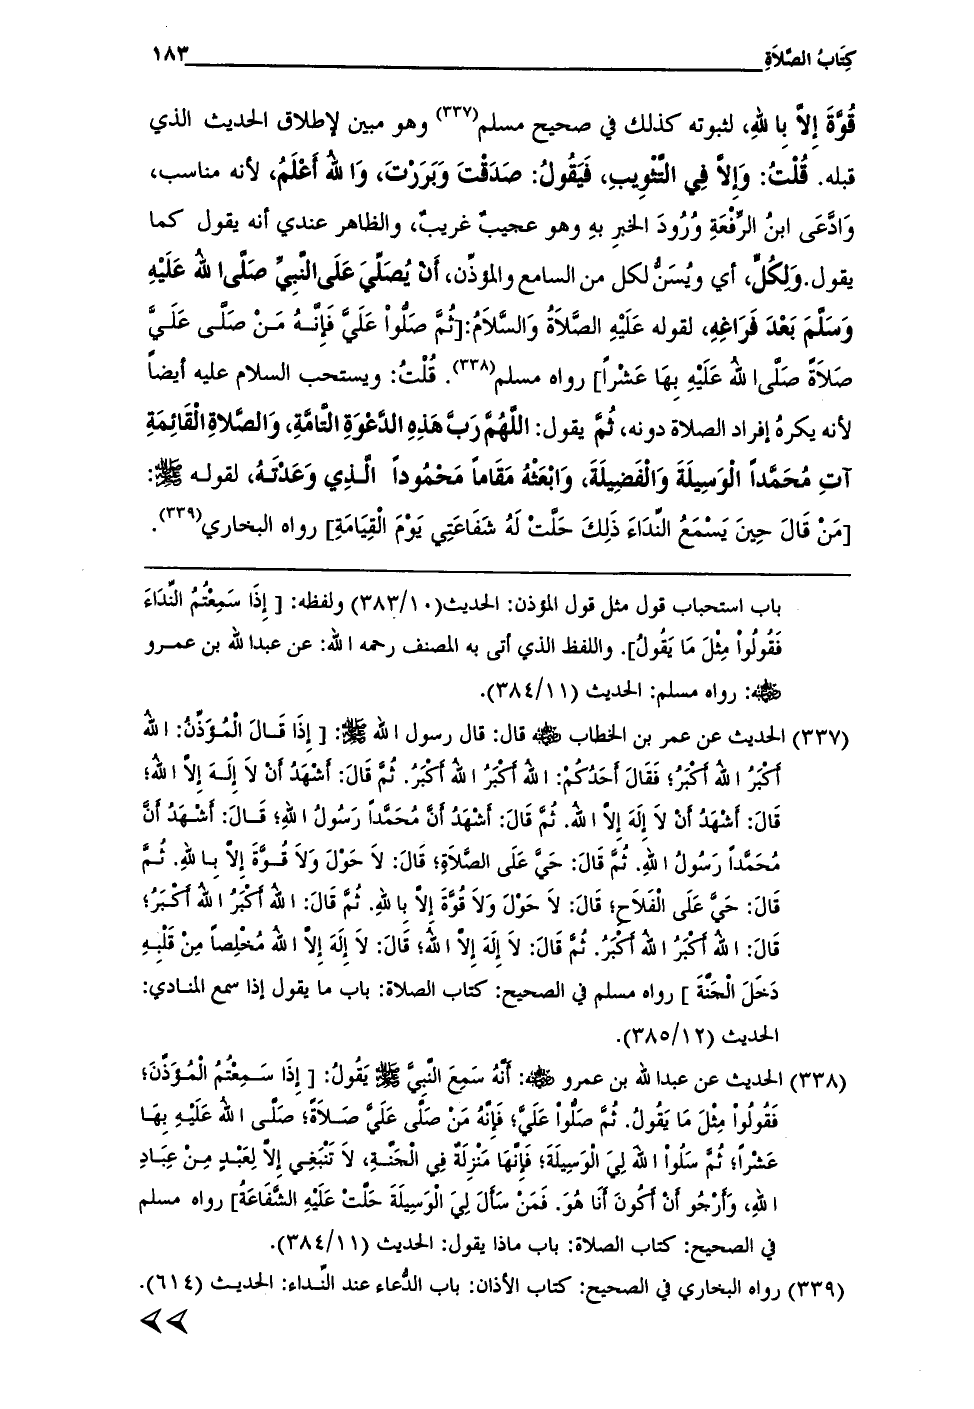 كِتَابُ الصَّلاَةِ ١٨٣
قُوَّةَ إِلاَّ بِا للهِ، لثبوته كذلك في صحيح مسلم(٣٣٧) وهو مبين لإطلاق الحديث الذي
قبله. قُلْتُ: وَإِلاَّ فِي التَّثْوِيبِ، فَيَقُولُ: صَدَقْتَ وَبَرَرْتَ، وَا للهُ أَعْلَمُ، لأنه مناسب،
وَادَّعَى ابنُ الرِّفْعَةِ وُرُودَ الخبرِ بهِ وهو عجيبٌ غريبٌ، والظاهر عندي أنه يقول كما
يقول. وَلِكُلٍّ، أي ويُسَنُّ لكل من السامع والمؤذّن، أَنْ يُصَلِّيَ عَلَى النَّبِيِّ صَلَّى ا للهُ عَلَيْهِ
وَسَلَّمَ بَعْدَ فَرَاغِهِ، لقوله عَلَيْهِ الصَّلاَةُ وَالسَّلاَمُ:[ثُمَّ صَلُّواْ عَلَيَّ فَإِنَّهُ مَنْ صَلَّى عَلَيَّ
صَلاَةً صَلَّى ا للهُ عَلَيْهِ بِهَا عَشْراً] رواه مسلم(٣٣٨). قُلْتُ: ويستحب السلام عليه أيضاً
لأنه يكرهُ إفراد الصلاة دونه، ثُمَّ يقول: اللَّهُمَّ رَبَّ هَذِهِ الدَّعْوَةِ التَّامَّةِ، وَالصَّلاةِ الْقَائِمَةِ
آتِ مُحَمَّداً الْوَسِيلَةَ وَالْفَضِيلَةَ، وَابْعَثْهُ مَقَاماً مَحْمُوداً الَّذِي وَعَدْتَهُ، لقوله ﷺ:
[مَنْ قَالَ حِينَ يَسْمَعُ النِّدَاءَ ذَلِكَ حَلَّتْ لَهُ شَفَاعَتِي يَوْمَ الْقِيَامَةِ] رواه البخاري(٣٣٩).
باب استحباب قول مثل قول المؤذن: الحديث(٣٨٣/١٠) ولفظه: [ إِذَا سَمِعْتُمُ النِّدَاءَ
فَقُولُواْ مِثْلَ مَا يَقُولُ]. واللفظ الذي أتى به المصنف رحمه ا لله: عن عبدا لله بن عمرو
﵁: رواه مسلم: الحديث (٣٨٤/١١).
(٣٣٧) الحديث عن عمر بن الخطاب ﵁ قال: قال رسول ا لله ﷺ: [ إِذَا قَالَ الْمُؤَذِّنُ: ا للهُ
أَكْبَرُ ا للهُ أَكْبَرُ؛ فَقَالَ أَحَدُكُمْ: ا للهُ أَكْبَرُ ا للهُ أَكْبَرُ. ثُمَّ قَالَ: أَشْهَدُ أَنْ لاَ إِلَهَ إِلاَّ ا للهُ؛
قَالَ: أَشْهَدُ أَنْ لاَ إِلَهَ إِلاَّ ا للهُ. ثُمَّ قَالَ: أَشْهَدُ أَنَّ مُحَمَّداً رَسُولُ ا للهِ؛ قَالَ: أَشْهَدُ أَنَّ
مُحَمَّداً رَسُولُ ا للهِ. ثُمَّ قَالَ: حَيَّ عَلَى الصَّلاَةِ؛ قَالَ: لاَ حَوْلَ وَلاَ قُوَّةَ إِلاَّ بِا للهِ. ثُمَّ
قَالَ: حَيَّ عَلَى الْفَلاَحِ؛ قَالَ: لاَ حَوْلَ وَلاَ قُوَّةَ إِلاَّ بِا للهِ. ثُمَّ قَالَ: ا للهُ أَكْبَرُ ا للهُ أَكْبَرُ؛
قَالَ: ا للهُ أَكْبَرُ ا للهُ أَكْبَرُ. ثُمَّ قَالَ: لاَ إِلَهَ إِلاَّ ا للهُ؛ قَالَ: لاَ إِلَهَ إِلاَّ ا للهُ مُخْلِصاً مِنْ قَلْبِهِ
دَخَلَ الْجَنَّةَ ] رواه مسلم في الصحيح: كتاب الصلاة: باب ما يقول إذا سمع المنادي:
الحديث (٣٨٥/١٢).
(٣٣٨) الحديث عن عبدا لله بن عمرو ﵁: أَنَّهُ سَمِعَ النَّبِيَّ ﷺ يَقُولُ: [ إِذَا سَمِعْتُمُ الْمُؤَذِّنَ؛
فَقُولُواْ مِثْلَ مَا يَقُولُ. ثُمَّ صَلُّواْ عَلَيَّ؛ فَإِنَّهُ مَنْ صَلَّى عَلَيَّ صَلاَةً؛ صَلَّى ا للهُ عَلَيْهِ بِهَا
عَشْراً؛ ثُمَّ سَلُواْ ا للهَ لِيَ الْوَسِيلَةَ؛ فَإِنَّهَا مَنْزِلَةٌ فِي الْجَنَّةِ، لاَ تَنْبَغِي إِلاَّ لِعَبْدٍ مِنْ عِبَادِ
ا للهِ، وَأَرْجُو أَنْ أَكُونَ أَنَا هُوَ. فَمَنْ سَأَلَ لِيَ الْوَسِيلَةَ حَلَّتْ عَلَيْهِ الشَّفَاعَةُ] رواه مسلم
في الصحيح: كتاب الصلاة: باب ماذا يقول: الحديث (٣٨٤/١١).
(٣٣٩) رواه البخاري في الصحيح: كتاب الأذان: باب الدُّعاء عند النِّداء: الحديث (٦١٤).